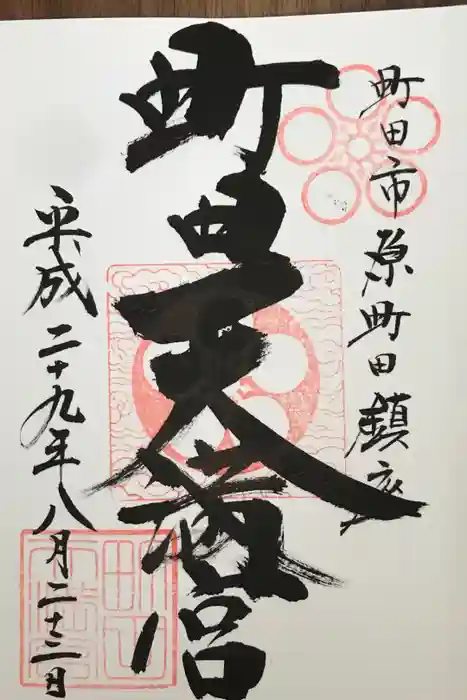 町田市原町田鎮座
町田天満宮
平成二十九年八月二十三日